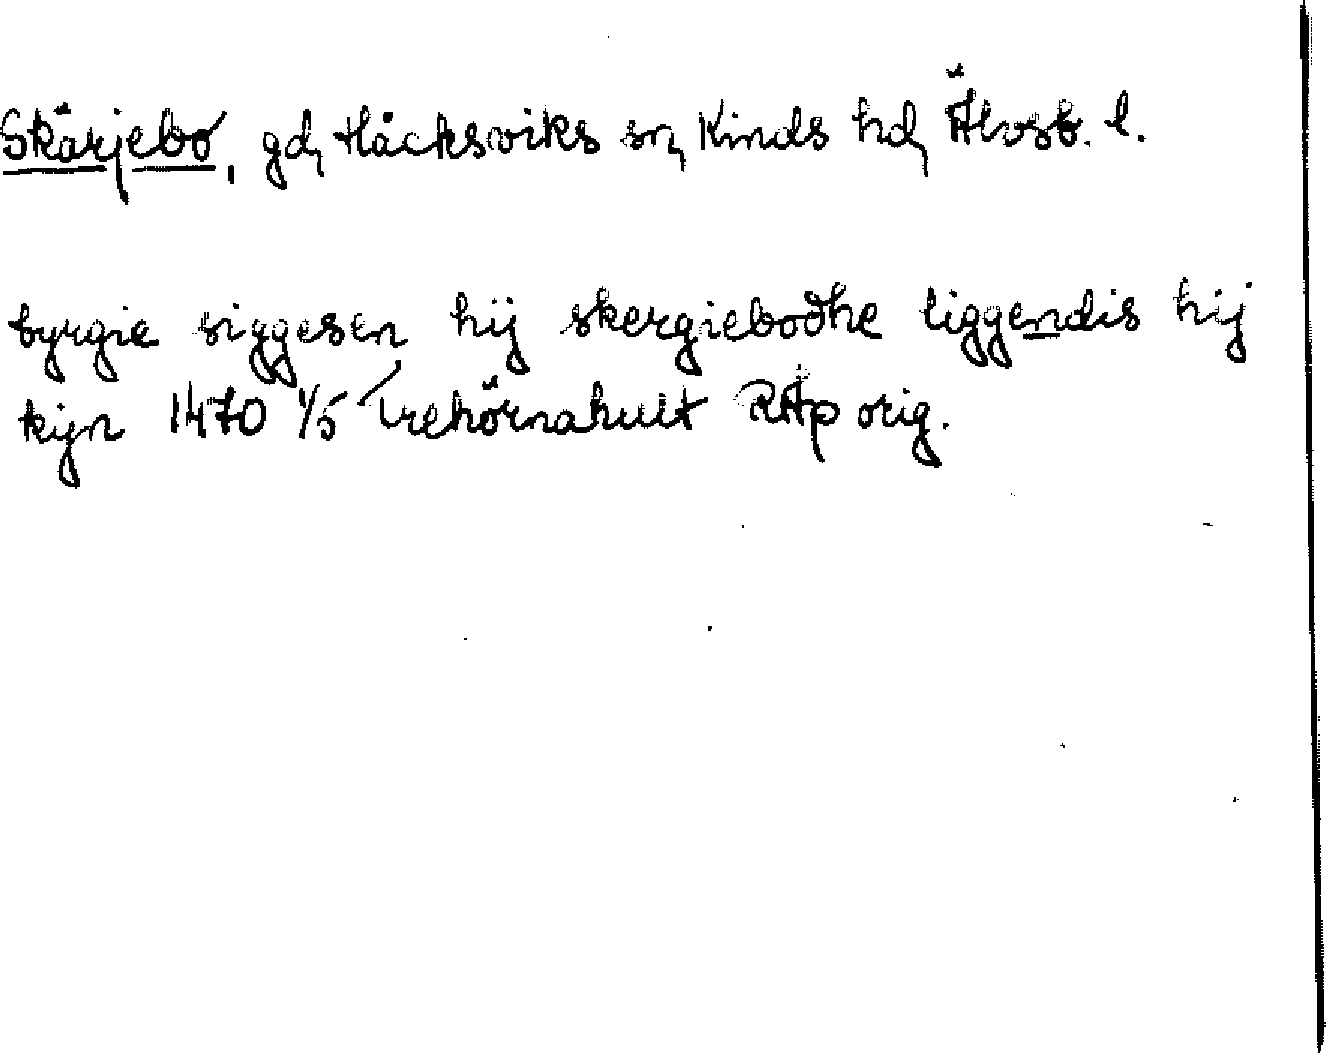 Skärjebo, gd, Håcksviks sn, Kinds hd, Älvsb. l.
byrgie siggesen hij skergiebodhe liggendis hij
kijn 1470 1/5 Trehörnahult RAp orig.